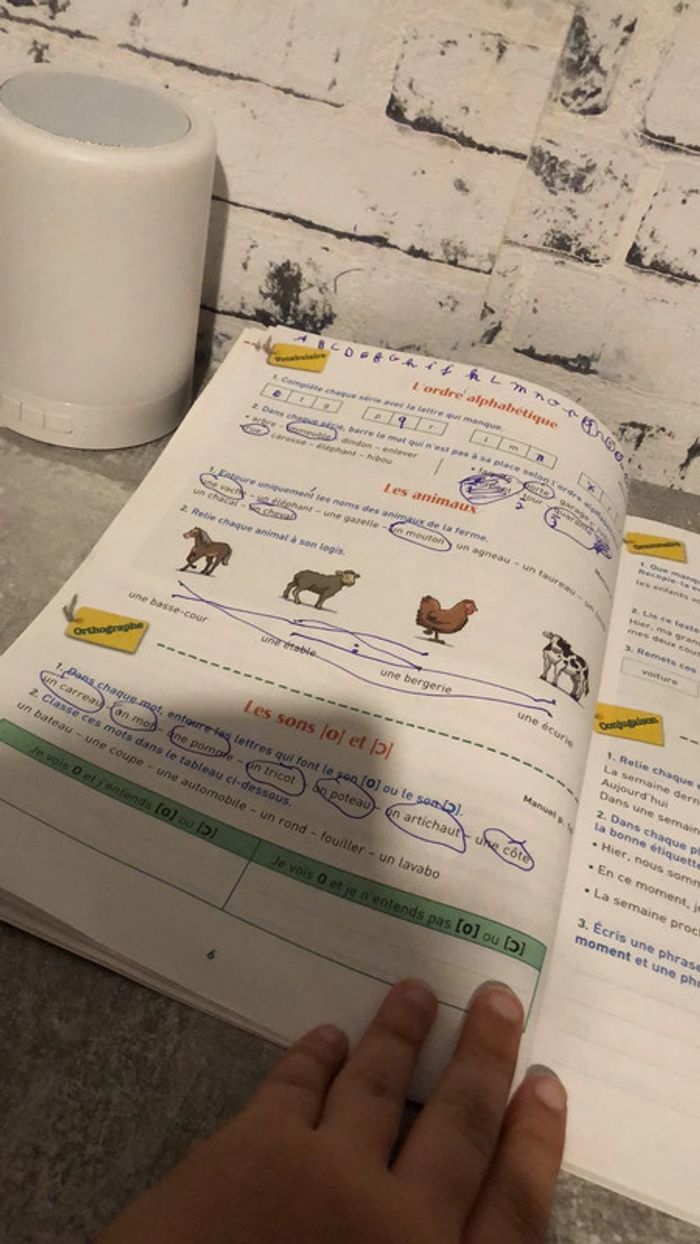 A B C D E F G h i j k L m n o
Vocabulaire
L'ordre alphabétique
1. Complète chaque série avec la lettre qui manque.
p q r
l m n
2. Dans chaque série, barre le mot qui n'est pas à sa place selon l'ordre
• arbre – immeuble – dindon – enlever
carosse – éléphant – hibou
Les animaux
1. Entoure uniquement les noms des animaux de la ferme.
une vache – un éléphant – une gazelle – un mouton – un agneau – un taureau –
un chacal – un cheval
2. Relie chaque animal à son logis.
une basse-cour
une étable
une bergerie
une écurie
Orthographe
Les sons [o] et [ɔ]
Manuel p.
1. Dans chaque mot, entoure les lettres qui font le son [o] ou le son [ɔ].
un carreau – un mot – une pomme – un tricot – un poteau – un artichaut – une côte
2. Classe ces mots dans le tableau ci-dessous.
un bateau – une coupe – une automobile – un rond – fouiller – un lavabo
Je vois O et j'entends [o] ou [ɔ]
Je vois O et je n'entends pas [o] ou [ɔ]
6
Grammaire
1. Que
Recopie-la
les enfants
2. Lis ce texte
Hier, ma
mes deux
3. Remets ces
voiture
Conjugaison
1. Relie chaque
La semaine
Aujourd'hui
Dans une semaine
2. Dans chaque
la bonne étiquette
• Hier, nous
• En ce moment,
• La semaine
3. Écris une phrase
moment et une